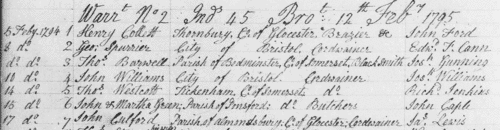 Warrt. No 2 Ind 45 Brot. 12th Feby 1795
5 Feby. 1794 1 Henry Collett Thornbury, C. of Glocester Brazier & John Ford
8 do. 2 Geo. Spurrier City of Bristol. Cordwainer Edwd. T. Cann
do do. 3 Thos. Barwell Parish of Bedminster, C. of Somerset, Black Smith Jos. Gunning
10 do. 4 John Williams City of Bristol. Cordwainer Jos. Williams
14 do 5 Thos. Westcott Tickenham, C. of Somerset, do. Richd. Jenkins
15 do 6 John & Martha Green; Parish of Durs­ford; do. Butchers John Caple
17 do. 7 John Culford, Parish of almondsbury, C. of Glocester; Cordwainer Jas. Lewis